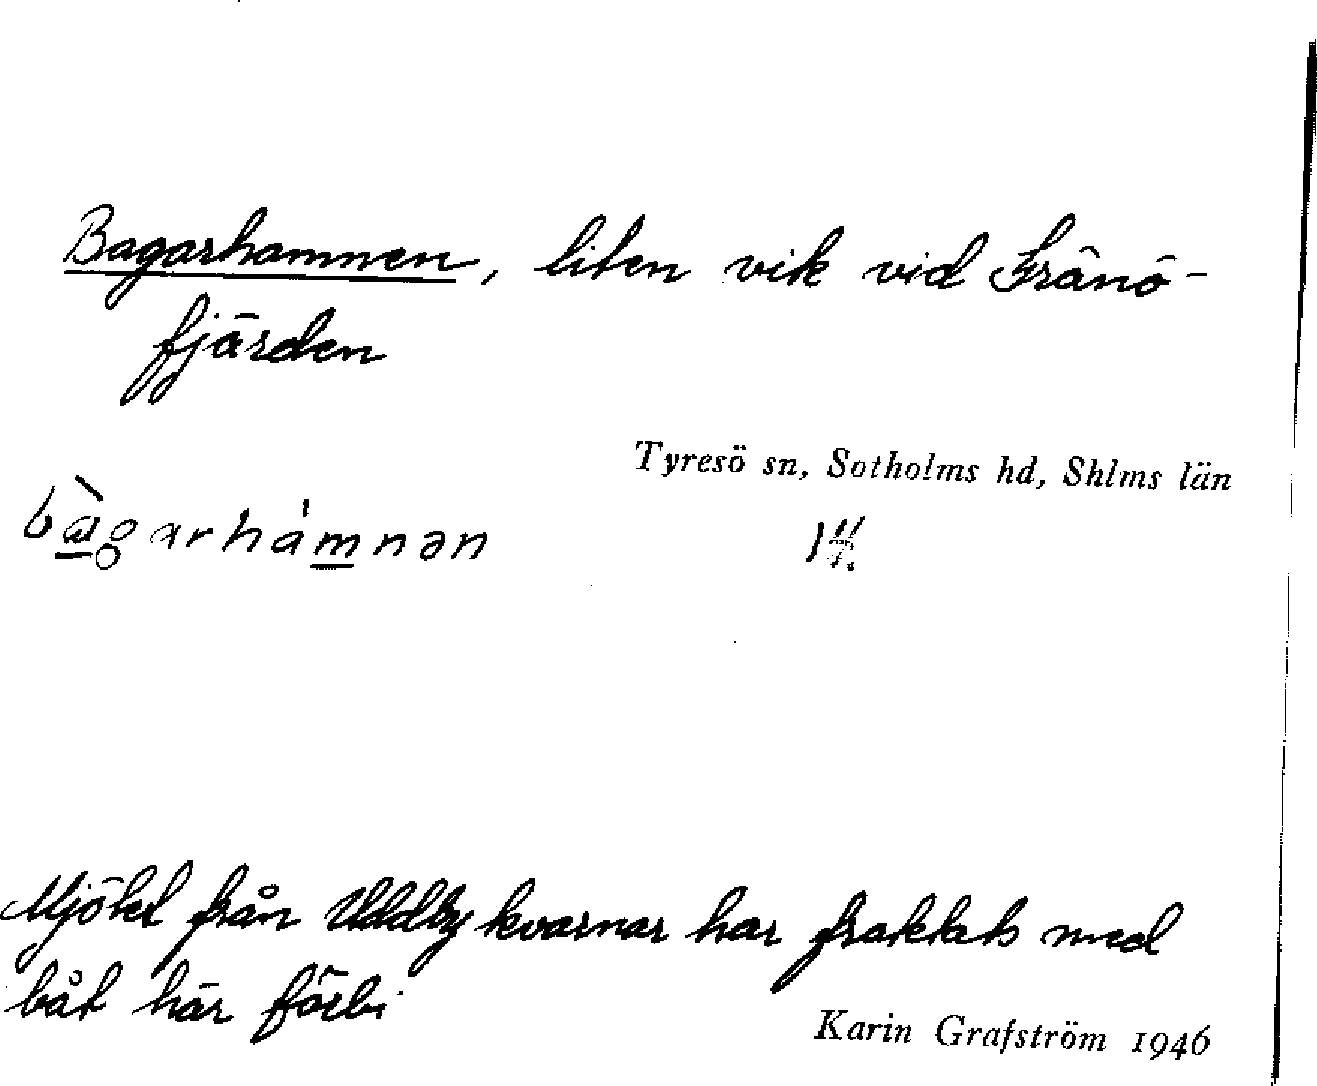 Bagarhamnen, liten vik vid Fränö-
fjärden
Tyresö sn, Sotholms hd, Shlms län
bàgarhámnən
Mjölet från Uddby kvarnar har fraktats med
båt här förbi
Karin Grafström 1946